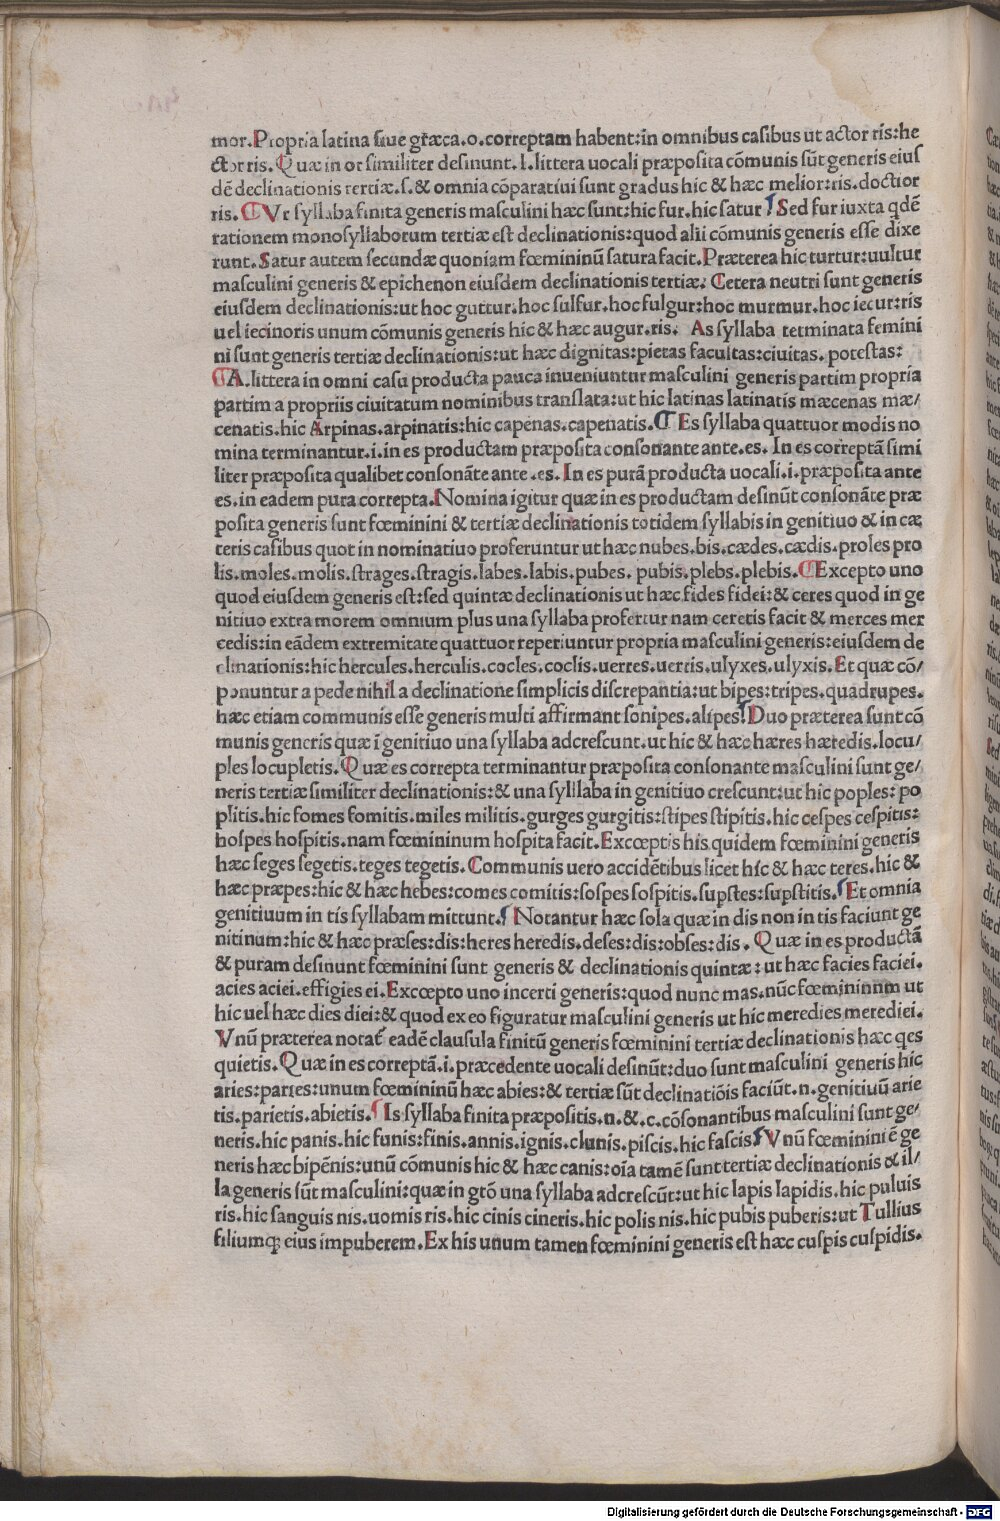 mor.Propria latina siue græca.o.correptam habent:in omnibus casibus ut actor ris:he
ctor ris.Quæ in or similiter desinunt.l.littera uocali præposita cõmunis sũt generis eius
dẽ declinationis tertiæ.s.& omnia cõparatiui sunt gradus hic & hæc melior:ris.doctior
ris.¶Vr syllaba finita generis masculini hæc sunt:hic fur.hic satur ¶Sed fur iuxta qdẽ
rationem monosyllaborum tertiæ est declinationis:quod alii cõmunis generis esse dixe
runt.Satur autem secundæ quoniam fœmininũ satura facit.Præterea hic turtur:uultur
masculini generis & epichenon eiusdem declinationis tertiæ. Cetera neutri sunt generis
eiusdem declinationis:ut hoc guttur.hoc sulfur.hoc fulgur:hoc murmur.hoc iecur:ris
uel iecinoris unum cõmunis generis hic & hæc augur.ris. As syllaba terminata femini
ni sunt generis tertiæ declinationis:ut hæc dignitas:pietas facultas:ciuitas.potestas:
¶A.littera in omni casu producta pauca inueniuntur masculini generis partim propria
partim a propriis ciuitatum nominibus translata:ut hic latinas latinatis mæcenas mæ/
cenatis.hic Arpinas.arpinatis:hic capenas.capenatis.¶ Es syllaba quattuor modis no
mina terminantur.i.in es productam præposita consonante ante.es. In es correptã simi
liter præposita qualibet consonãte ante .es.In es purã producta uocali.i.præposita ante
es.in eadem pura correpta.Nomina igitur quæ in es productam desinũt consonãte præ
posita generis sunt fœminini & tertiæ declinationis totidem syllabis in genitiuo & in cæ
teris casibus quot in nominatiuo proferuntur ut hæc nubes.bis.cædes.cædis.proles pro
lis.moles.molis.strages.stragis.labes.labis.pubes. pubis.plebs.plebis.¶Excepto uno
quod eiusdem generis est:sed quintæ declinationis ut hæc fides fidei:& ceres quod in ge
nitiuo extra morem omnium plus una syllaba profertur nam ceretis facit & merces mer
cedis:in eãdem extremitate quattuor reperiuntur propria masculini generis:eiusdem de
clinationis:hic hercules.herculis.cocles.coclis.uerres.uerris.ulyxes.ulyxis.Et quæ cõ/
ponuntur a pede nihil a declinatione simplicis discrepantia:ut bipes:tripes.quadrupes.
hæc etiam communis esse generis multi affirmant sonipes.alipes!¶Duo præterea sunt cõ
munis generis quæ ĩ genitiuo una syllaba adcrescunt.ut hic & hæc hæres hæredis.locu/
ples locupletis.Quæ es correpta terminantur præposita consonante masculini sunt ge/
neris tertiæ similiter declinationis:& una syllaba in genitiuo crescunt:ut hic poples: po
plitis.hic fomes fomitis.miles militis.gurges gurgitis:stipes stipitis.hic cespes cespitis:
hospes hospitis.nam fœmininum hospita facit.Exceptis his quidem fœminini generis
hæc seges segetis.teges tegetis.Communis uero accidẽtibus licet hic & hæc teres.hic &
hæc præpes:hic & hæc hebes:comes comitis:sospes sospitis.supstes:supstitis.¶Et omnia
genitiuum in tis syllabam mittunt.¶Notantur hæc sola quæ in dis non in tis faciunt ge
nitinum:hic & hæc præses:dis:heres heredis.deses:dis:obses:dis.Quæ in es productã
& puram desinunt fœminini sunt generis & declinationis quintæ:ut hæc facies faciei.
acies aciei.effigies ei.Excœpto uno incerti generis:quod nunc mas.nũc fœmininnm ut
hic uel hæc dies diei:& quod ex eo figuratur masculini generis ut hic meredies merediei.
Vnũ præterea notat᷑ eadẽ clausula finitũ generis fœminini tertiæ declinationis hæc qes
quietis.Quæ in es correptã.i.præcedente uocali desinũt:duo sunt masculini generis hic
aries:paries:unum fœmininũ hæc abies:& tertiæ sũt declinatiõis faciũt.n.genitiuũ arie
tis.parietis.abietis.¶Is syllaba finita præpositis.n.&.c.cõsonantibus masculini sunt ge/
neris.hic panis.hic funis:finis.annis.ignis.clunis.piscis.hic fascis¶Vnũ fœminini ẽ ge
neris hæc bipẽnis:unũ cõmunis hic & hæc canis:oĩa tamẽ sunt tertiæ declinationis & il/
la generis sũt masculini:quæ in gtõ una syllaba adcrescũt:ut hic lapis lapidis.hic puluis
ris.hic sanguis nis.uomis ris.hic cinis cineris.hic polis nis.hic pubis puberis:ut Tullius
filiumqꝫ eius impuberem.Ex his unum tamen fœminini generis est hæc cuspis cuspidis.
Digitalisierung gefördert durch die Deutsche Forschungsgemeinschaft - DFG